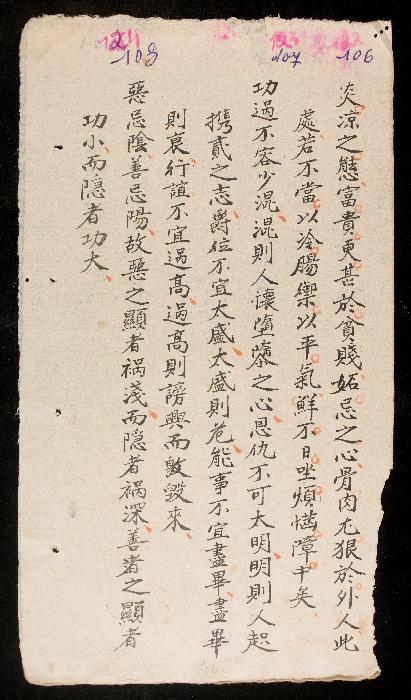 炎凉之態富貴更甚於貧賤妬忌之心骨肉尤狠於外人此
處若不當以冷腸禦以平氣鮮不日坐煩惱障中矣
功過不容少混混則人懷墮隳之心恩仇不可太明明則人起
携貳之志爵位不宜太盛太盛則危能事不宜盡畢盡畢
則衰行誼不宜過高過高則謗興而毀來
惡忌陰善忌陽故惡之顯者禍淺而隱者禍深善者之顯者
功小而隱者功大
106
107
108